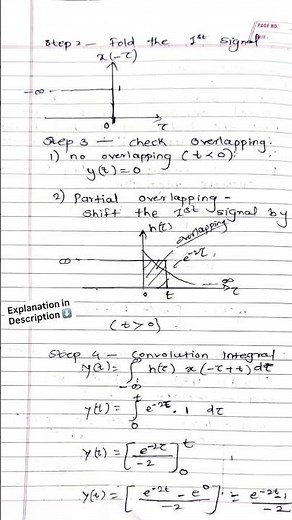 PAGE NO.
Step 2 - Fold the 1st signal
x(-τ)
-∞
1
0
τ
Step 3 — check overlapping.
1) no overlapping (t<0):
y(t) = 0
2) Partial overlapping -
Shift the 1st signal by
h(τ)
overlapping
e^-2τ
-∞
∞
0
t
τ
Explanation in
Description ⬇️
(t>0)
Step 4 — Convolution Integral
y(t) = ∫_-∞^∞ h(τ) x(-τ+t) dτ
y(t) = ∫_0^t e^-2τ . 1 dτ
y(t) = [e^-2τ / -2]_0^t
y(t) = [e^-2t - e^0 / -2] = e^-2t - 1 / -2